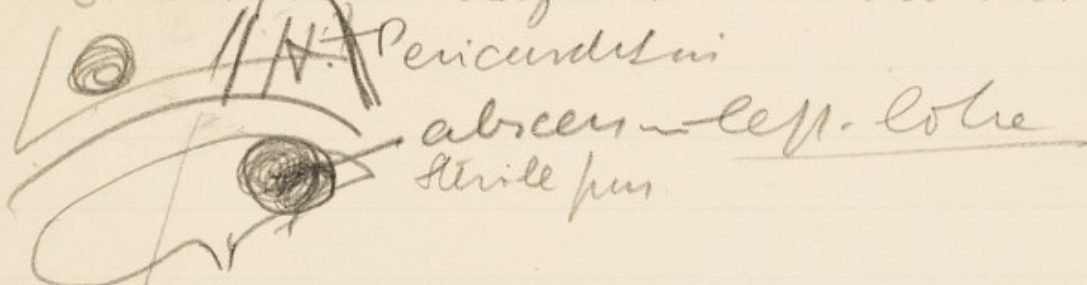 Pericarditis
abscess in left. lobe
Sterile pus